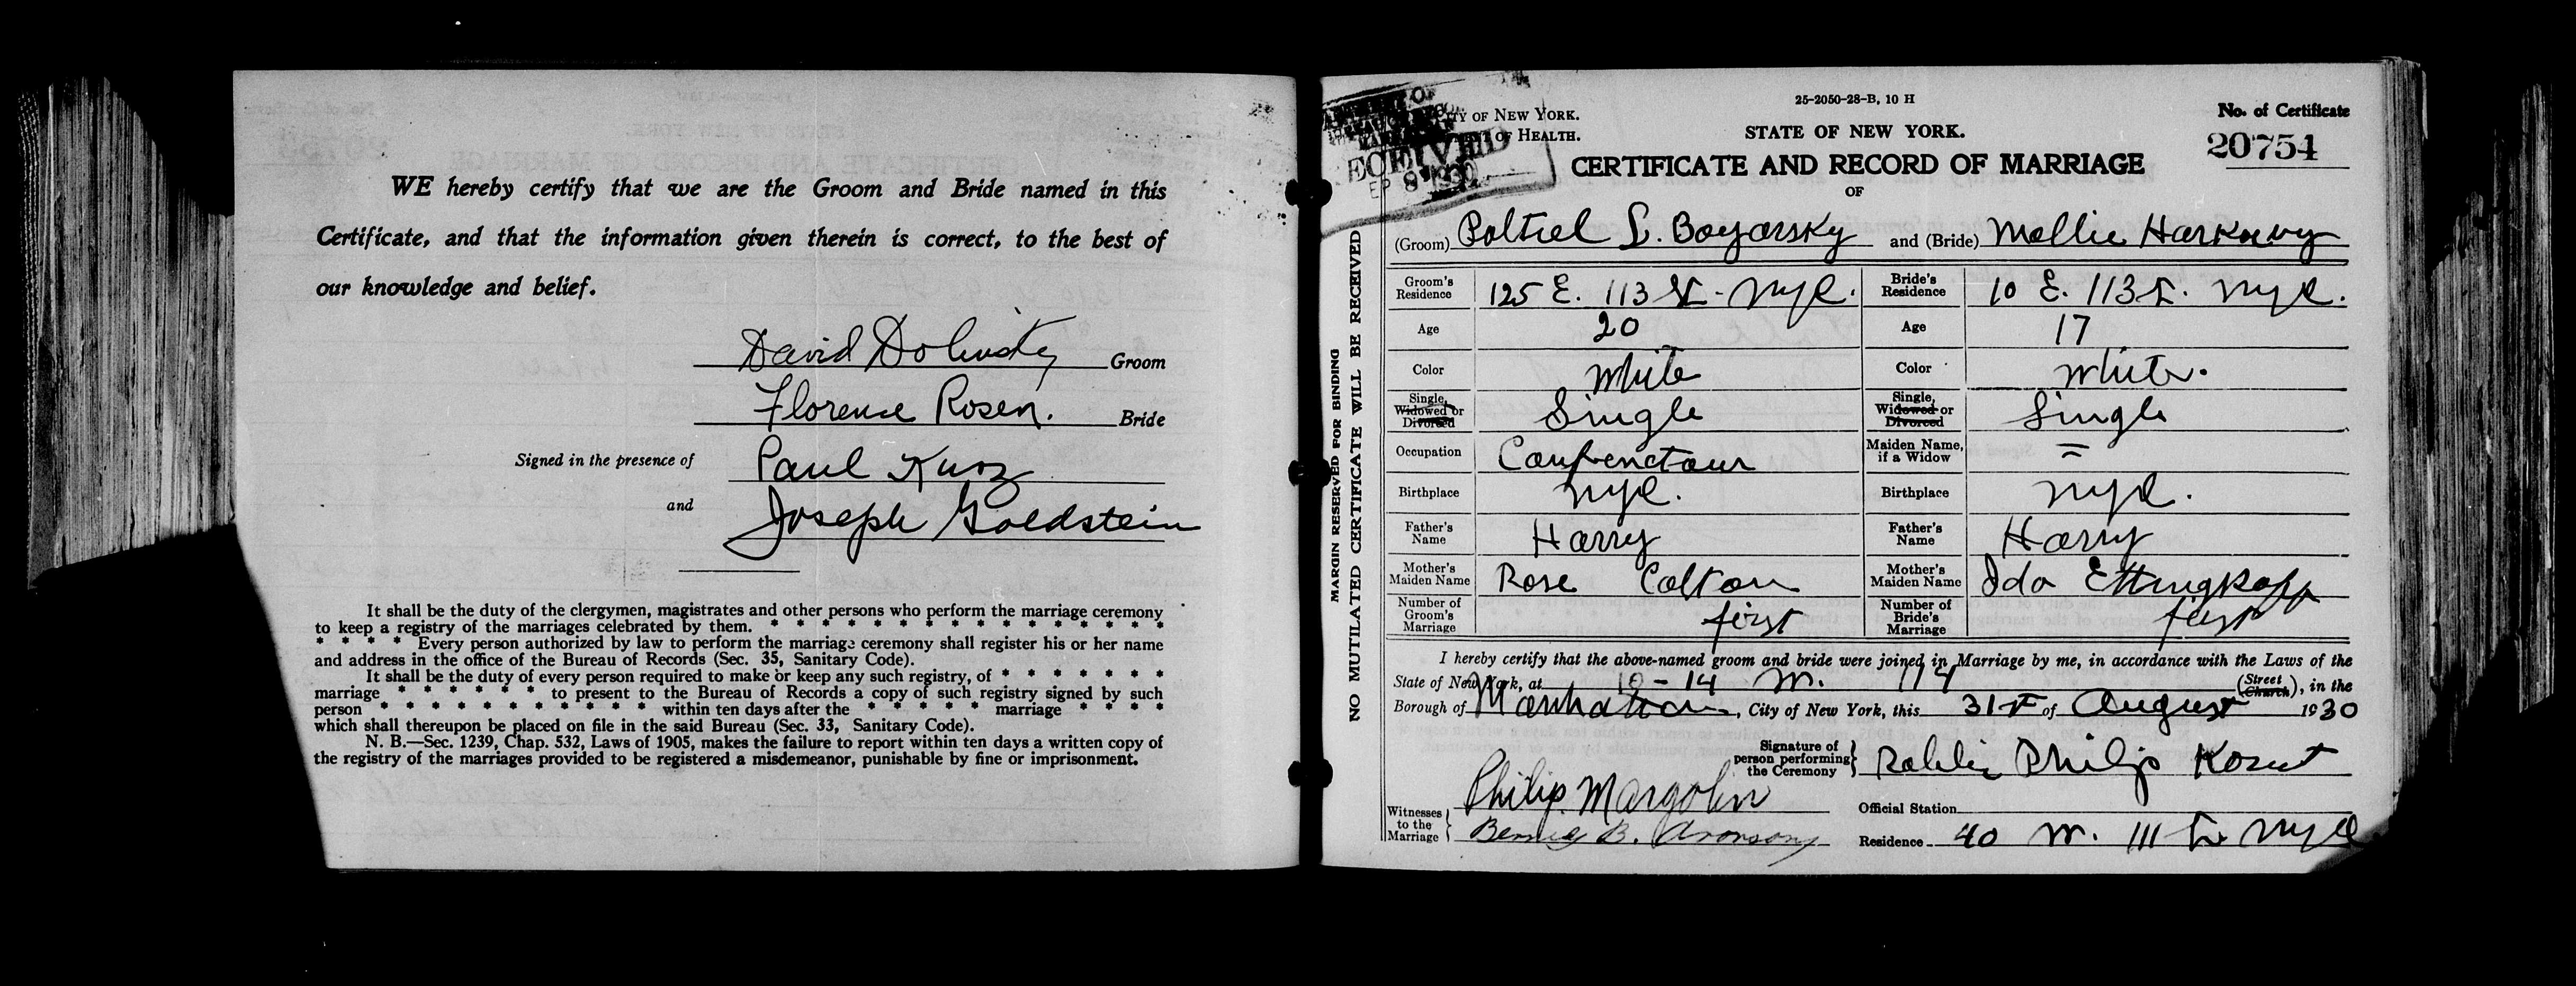 WE hereby certify that we are the Groom and Bride named in this
Certificate, and that the information given therein is correct, to the best of
our knowledge and belief.
David Dolinsky Groom
Florence Rosen. Bride
Signed in the presence of Paul Kurz
and Joseph Goldstein
It shall be the duty of the clergymen, magistrates and other persons who perform the marriage ceremony
to keep a registry of the marriages celebrated by them. * * * * * * * * * * * * * *
* * * * Every person authorized by law to perform the marriage ceremony shall register his or her name
and address in the office of the Bureau of Records (Sec. 35, Sanitary Code).
It shall be the duty of every person required to make or keep any such registry, of * * * * * * *
marriage * * * * * * * to present to the Bureau of Records a copy of such registry signed by such
person * * * * * * * * * * * * within ten days after the * * * * * * marriage * * * *
which shall thereupon be placed on file in the said Bureau (Sec. 33, Sanitary Code).
N. B.—Sec. 1239, Chap. 532, Laws of 1905, makes the failure to report within ten days a written copy of
the registry of the marriages provided to be registered a misdemeanor, punishable by fine or imprisonment.
MARGIN RESERVED FOR BINDING
NO MUTILATED CERTIFICATE WILL BE RECEIVED
25-2050-28-B, 10 H
OF NEW YORK.
OF HEALTH.
STATE OF NEW YORK.
No. of Certificate
20754
CERTIFICATE AND RECORD OF MARRIAGE
OF
(Groom) Paltiel L. Boyarsky and (Bride) Mollie Harkavy
Groom's Residence 125 E. 113 St. NYC. Bride's Residence 10 E. 113 St. NYC.
Age 20 Age 17
Color White Color White.
Single, Widowed or Divorced Single Single, Widowed or Divorced Single
Occupation Maiden Name, if a Widow =
Birthplace NYC. Birthplace NYC.
Father's Name Harry Father's Name Harry
Mother's Maiden Name Rose Colton Mother's Maiden Name Ida
Number of Groom's Marriage first Number of Bride's Marriage first
I hereby certify that the above-named groom and bride were joined in Marriage by me, in accordance with the Laws of the
State of New York, at 10-14 W. 114 (Street Church), in the
Borough of Manhattan, City of New York, this 31st of August 1930
Signature of person performing the Ceremony Rabbi Philip
Witnesses to the Marriage Philip Margolin
Bennie B. Aronson
Official Station
Residence 40 W. 111 St NYC